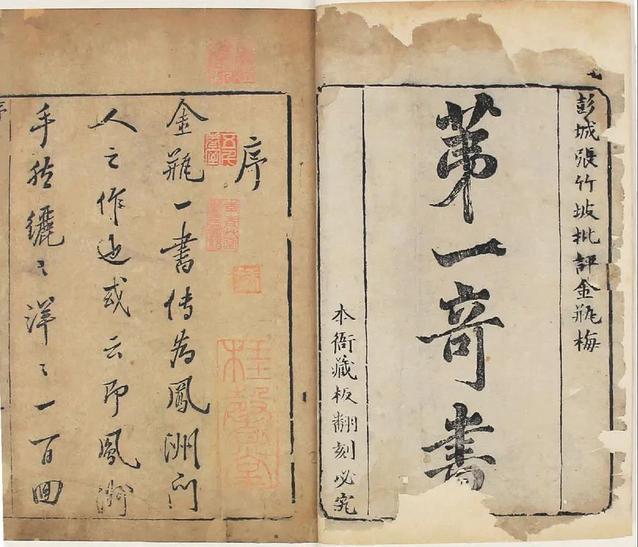 彭城張竹坡批評金瓶梅
第一奇書
本衙藏板翻刻必究
序
金瓶一書傳為鳳洲門
人之作也或云即鳳洲
手然纚々洋々一百回
桂馨堂